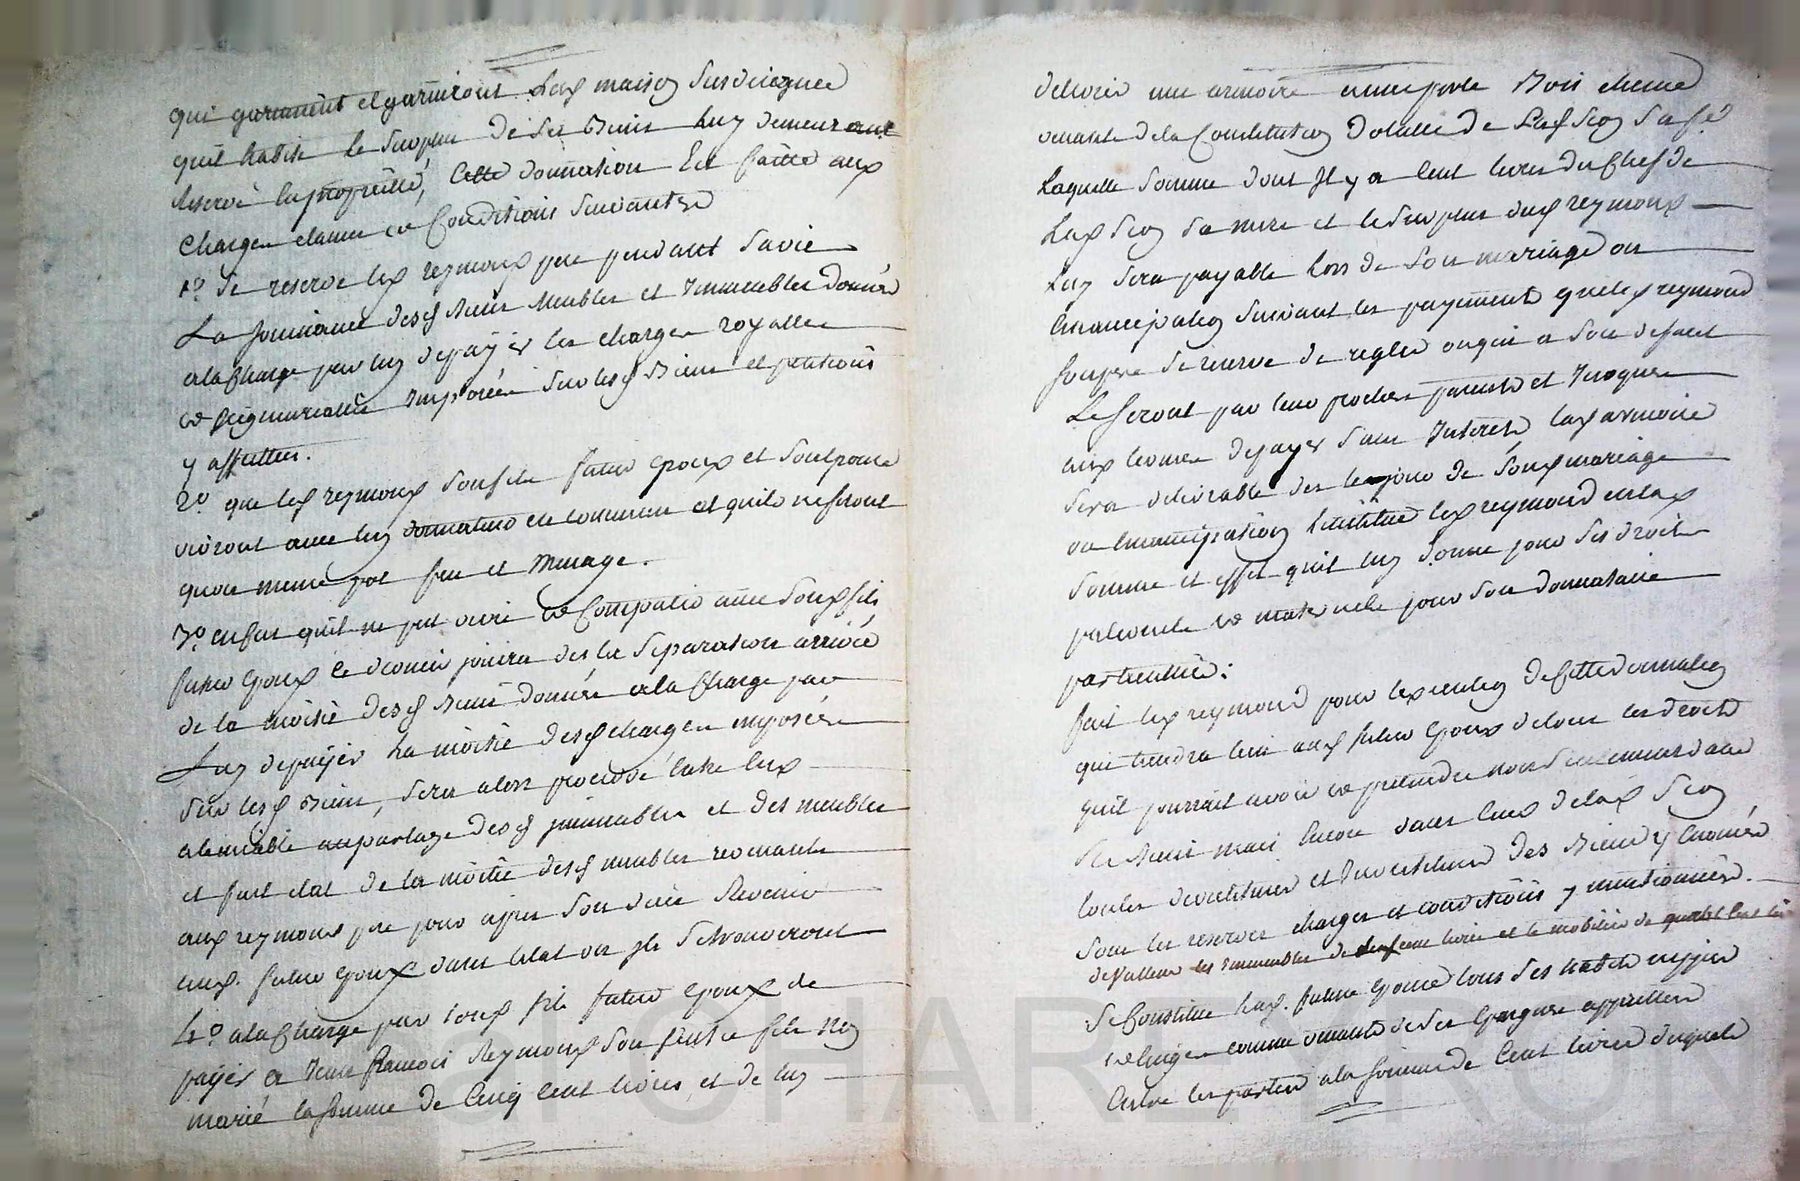 qui garnissent et garniront lad maison susdesignée
quil habite le surplus de ses biens luy demeurant
reservé la proprietté, Cette donnation Est faitte aux
charges clauses et Conditions suivantes
1.° Se reserve led reymond pere pendant sa vie
La jouissance desd biens Meubles et Immeubles donnés
ala Charge par luy depayer les charges royalles
et seigneurialles Imposées sur lesd biens et pentions
y affectées.
2.° que led reymond son fils futur epoux et son epouse
vivront avec luy donnateur en commun et quils ne feront
quun meme pot feu et Menage.
3.° en cas quil ne put vivre et Compatir avec sond fils
futur Epoux Ce dernier jouira des la Separation arrivée
de la moitié desd biens donnés ala Charge par
Luy depayer La moitié desd charges imposées
sur lesd biens, sera alors procedé Entre Eux
alamiable aupartage desd immeubles et des meubles
et fait etat de la moitié desd meubles restants
aud reymond pere pour apres son deces Revenir
aud. futur epoux dans letat ou ils se trouveront
4.° ala Charge par sond fils futur Epoux de
payer a Jean francois Reymond son frere fils Non
marié la somme de Cinq Cent livres, et de luy
delivrer une armoire aune porte Bois chene
venant dela Constitution Dotalle de Lad
Laquelle somme dont Il y a Cent livres du Chef de
Lad sa mere et le surplus dud reymond
Luy sera payable lors de son mariage ou
Emancipation suivant les payements que led reymond
son pere se reserve de regler ou qui a son defaut
Le seront par leurs proches parents et Jusques
aux termes depayer sans Interets lad armoire
sera delivrable des le jour de sond mariage
ou Emancipation Linstitue led reymond en lad
somme et effet quil luy donne pour ses droits
paternels et maternels pour son donnataire
particulier:
fait led reymond pour lexecution de Cette donnation
qui tiendra lieu aud futur Epoux de tous les droits
quil pourrait avoir et pretendre non seulement dans
ses biens mais Encore dans ceux de lad
toutes devestitures et Investitures des biens y Enoncés
sous les reserves charges et conditions y mentionnées.
de valleur les immeubles de cent livres et le mobilier de quatre Cent
Se Constitue lad. future Epouse tous ses habits nippes
et linges comme venants de ses Epargnes appretiés
Entre les parties ala somme de Cent livres desquels